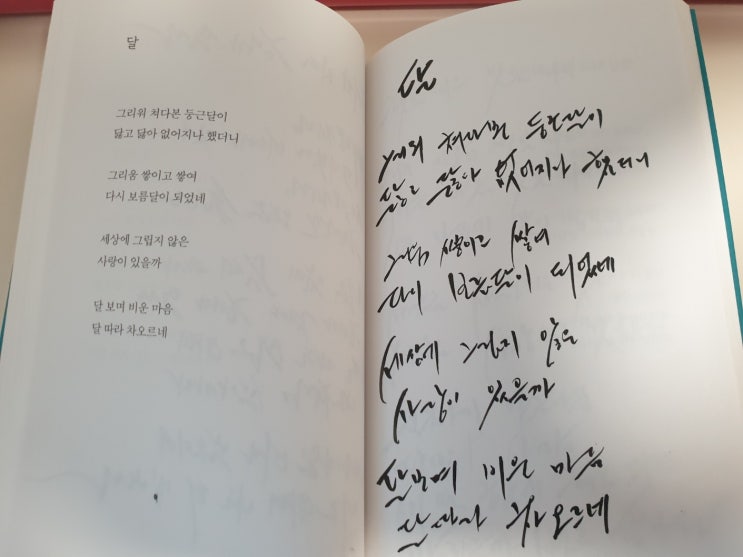 달
그리워 쳐다본 둥근달이
닳고 닳아 없어지나 했더니
그리움 쌓이고 쌓여
다시 보름달이 되었네
세상에 그립지 않은
사랑이 있을까
달 보며 비운 마음
달 따라 차오르네
달
그리워 쳐다본 둥근달이
닳고 닳아 없어지나 했더니
그리움 쌓이고 쌓여
다시 보름달이 되었네
세상에 그립지 않은
사랑이 있을까
달 보며 비운 마음
달 따라 차오르네